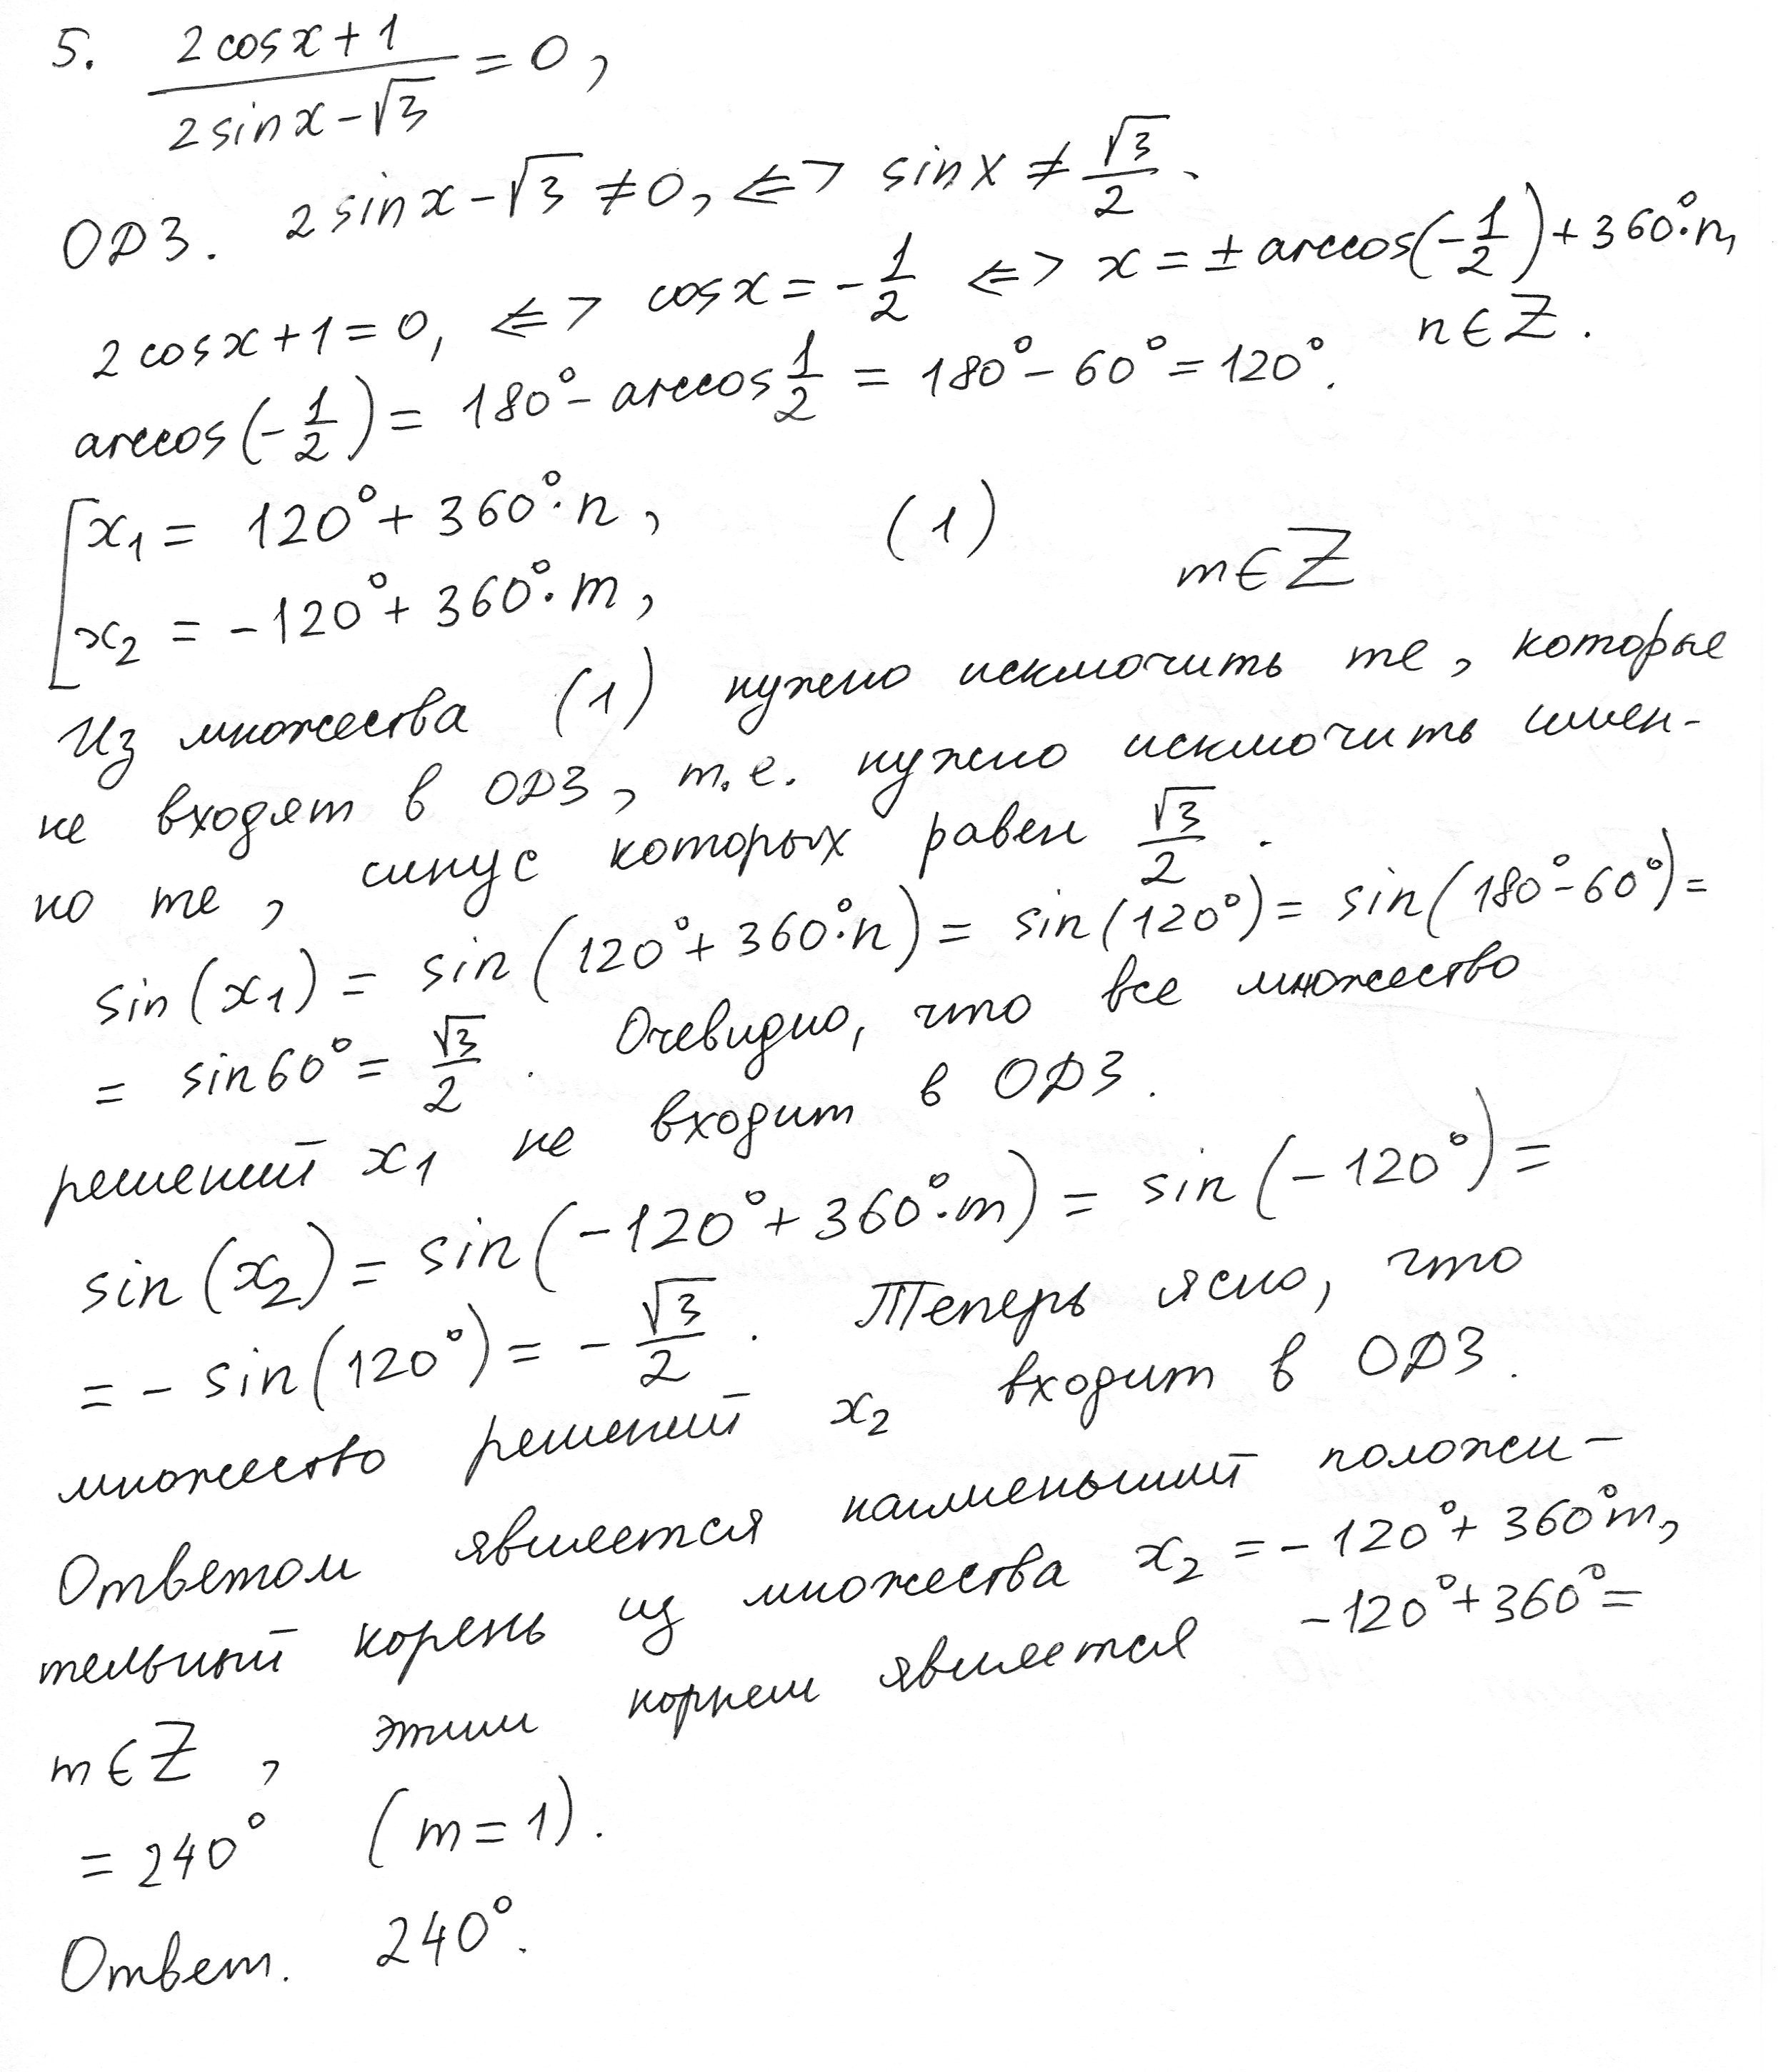 5. (2cosx+1)/(2sinx-√3) = 0,
ОДЗ. 2sinx-√3≠0, <=> sinx≠√3/2.
2cosx+1=0, <=> cosx=-1/2 <=> x=±arccos(-1/2)+360°·n,
n∈Z.
arccos(-1/2) = 180°-arccos 1/2 = 180°-60°=120°.
[x₁= 120°+360°·n, (1)
x₂ = -120°+360°·m, m∈Z
Из множества (1) нужно исключить те, которые
не входят в ОДЗ, т.е. нужно исключить имен-
но те, синус которых равен √3/2.
sin(x₁) = sin(120°+360°·n) = sin(120°) = sin(180°-60°) =
= sin60° = √3/2. Очевидно, что все множество
решений x₁ не входит в ОДЗ.
sin(x₂) = sin(-120°+360°·m) = sin(-120°) =
= - sin(120°) = -√3/2. Теперь ясно, что
множество решений x₂ входит в ОДЗ.
Ответом является наименьший положи-
тельный корень из множества x₂ =-120°+360°m,
m∈Z, этим корнем является -120°+360°=
= 240° (m=1).
Ответ. 240°.